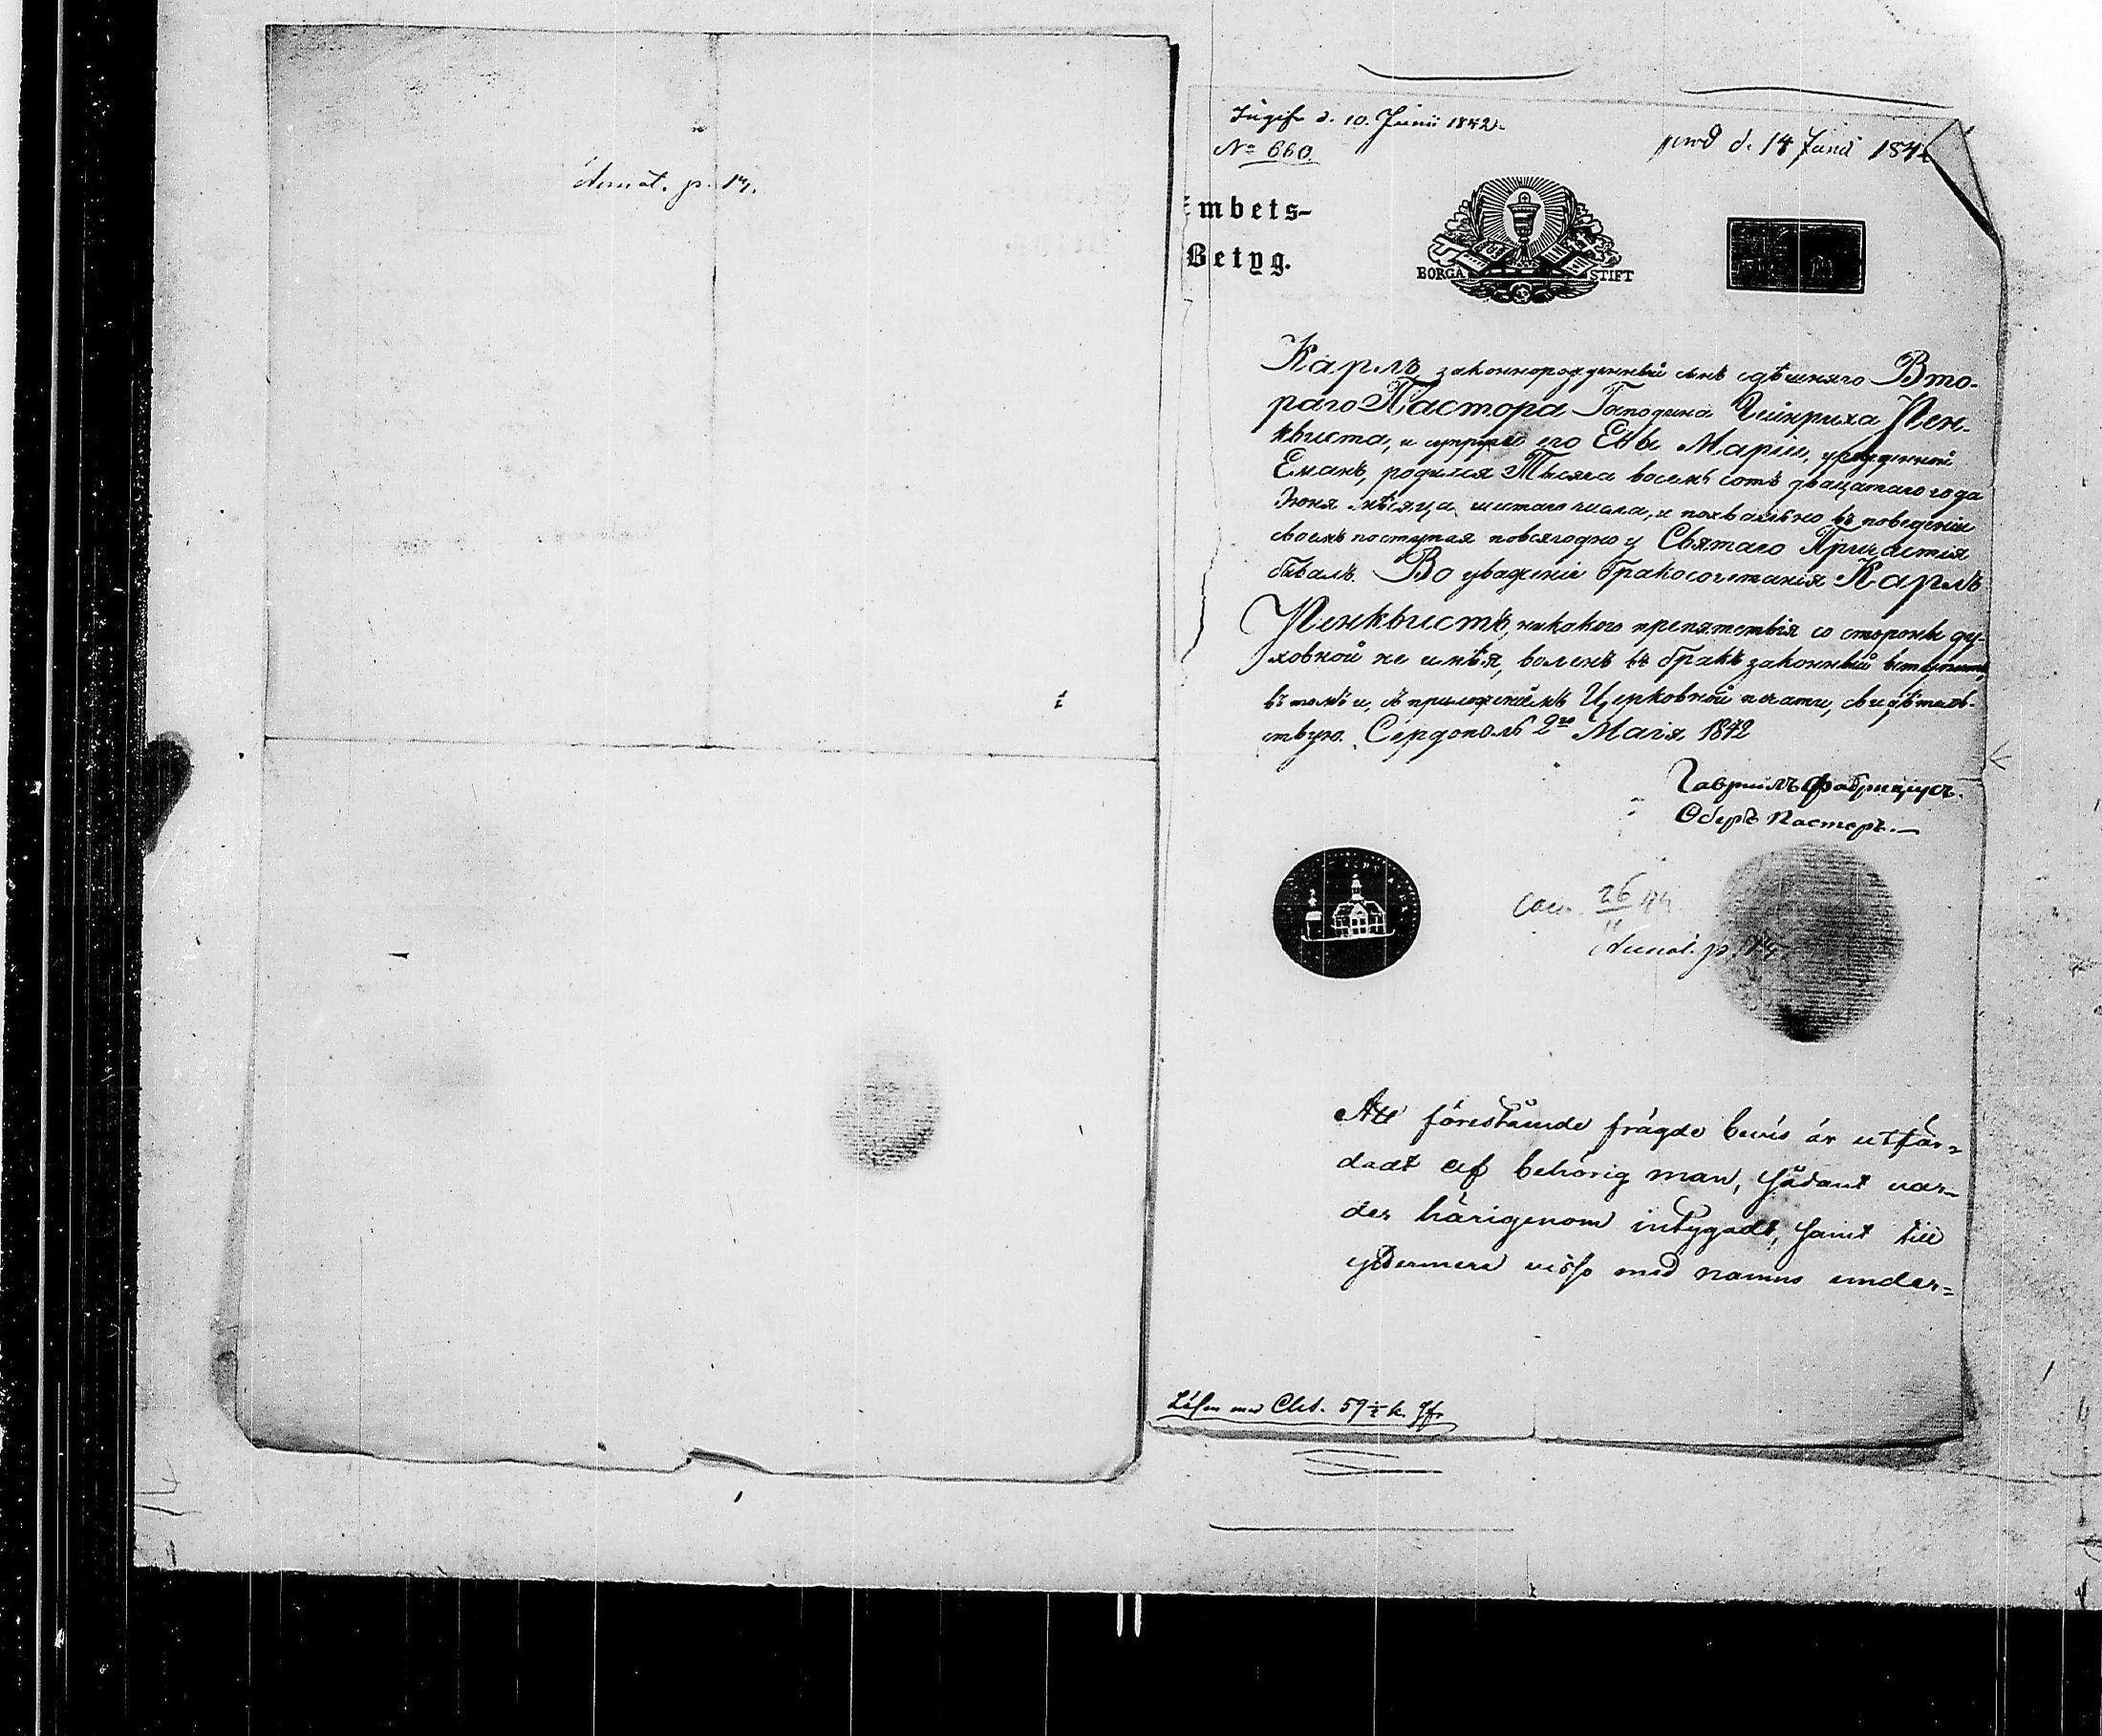 Annot. p. 17.
Ingif. d. 10. Junii 1842.
No 660.
prod d. 14 Junii 1842
Embets-
Betyg.
BORGÅ STIFT
Карлъ законнорожденный сынъ здѣшняго Вто-
раго Пастора Господина Гейнриха Ренк-
квиста, и супруги его Евы Маріи, урожденной
Еманъ, родился Тысяча восемь сотъ двацатаго года
Іюня мѣсяца шестаго числа, и похвально въ поведеніи
своемъ поступая повсягодно у Святаго Причастія
бывалъ. Во уваженіе бракосочетанія Карлъ
Ренквистъ, никакого препятствія со стороны ду-
ховной не имѣя, воленъ въ бракъ законный вступить,
въ томъ и, съ приложеніемъ Церковной печати, свидѣтель-
ствую. Сердополь 2го Маія 1842
Гавріилъ Фабрицiусъ.
Оберъ Пасторъ.
26
11
Annot. p. 17.
Att förestående frägde bevis är utfär-
dadt af behörig man, sådant var-
der härigenom intygadt, samt till
yttermera visso med namns under-
Lösen med Chts. 57 1/2 k. Sfr